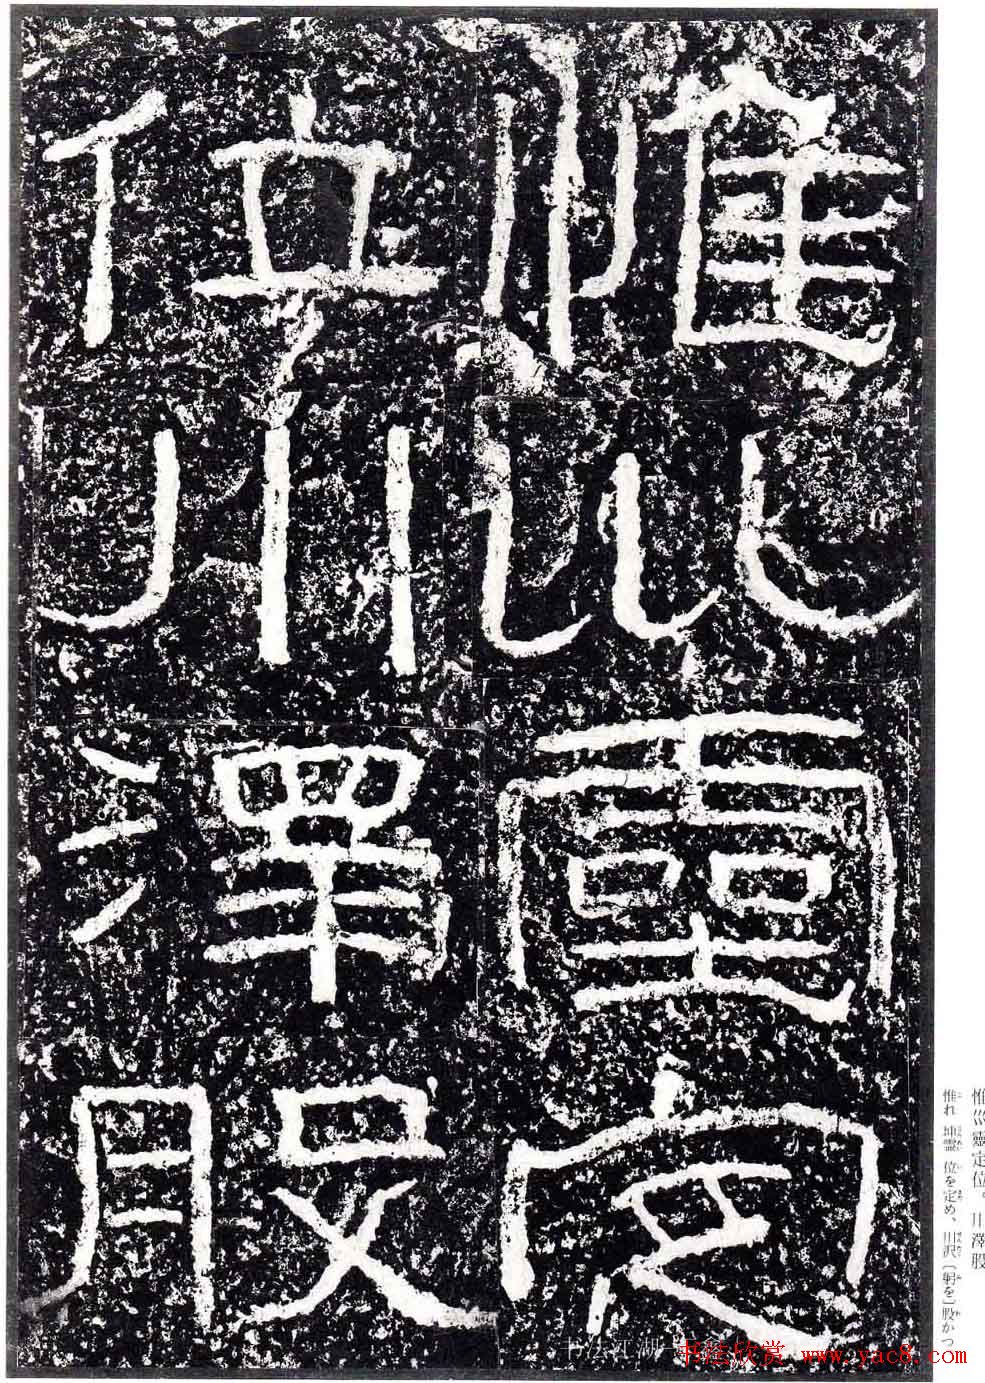 惟巛靈定
位川澤股
惟巛靈定位。川澤股
惟れ坤霊位を定め、川沢〔躬を〕股かつ
书法江湖
书法欣赏 www.yac8.com